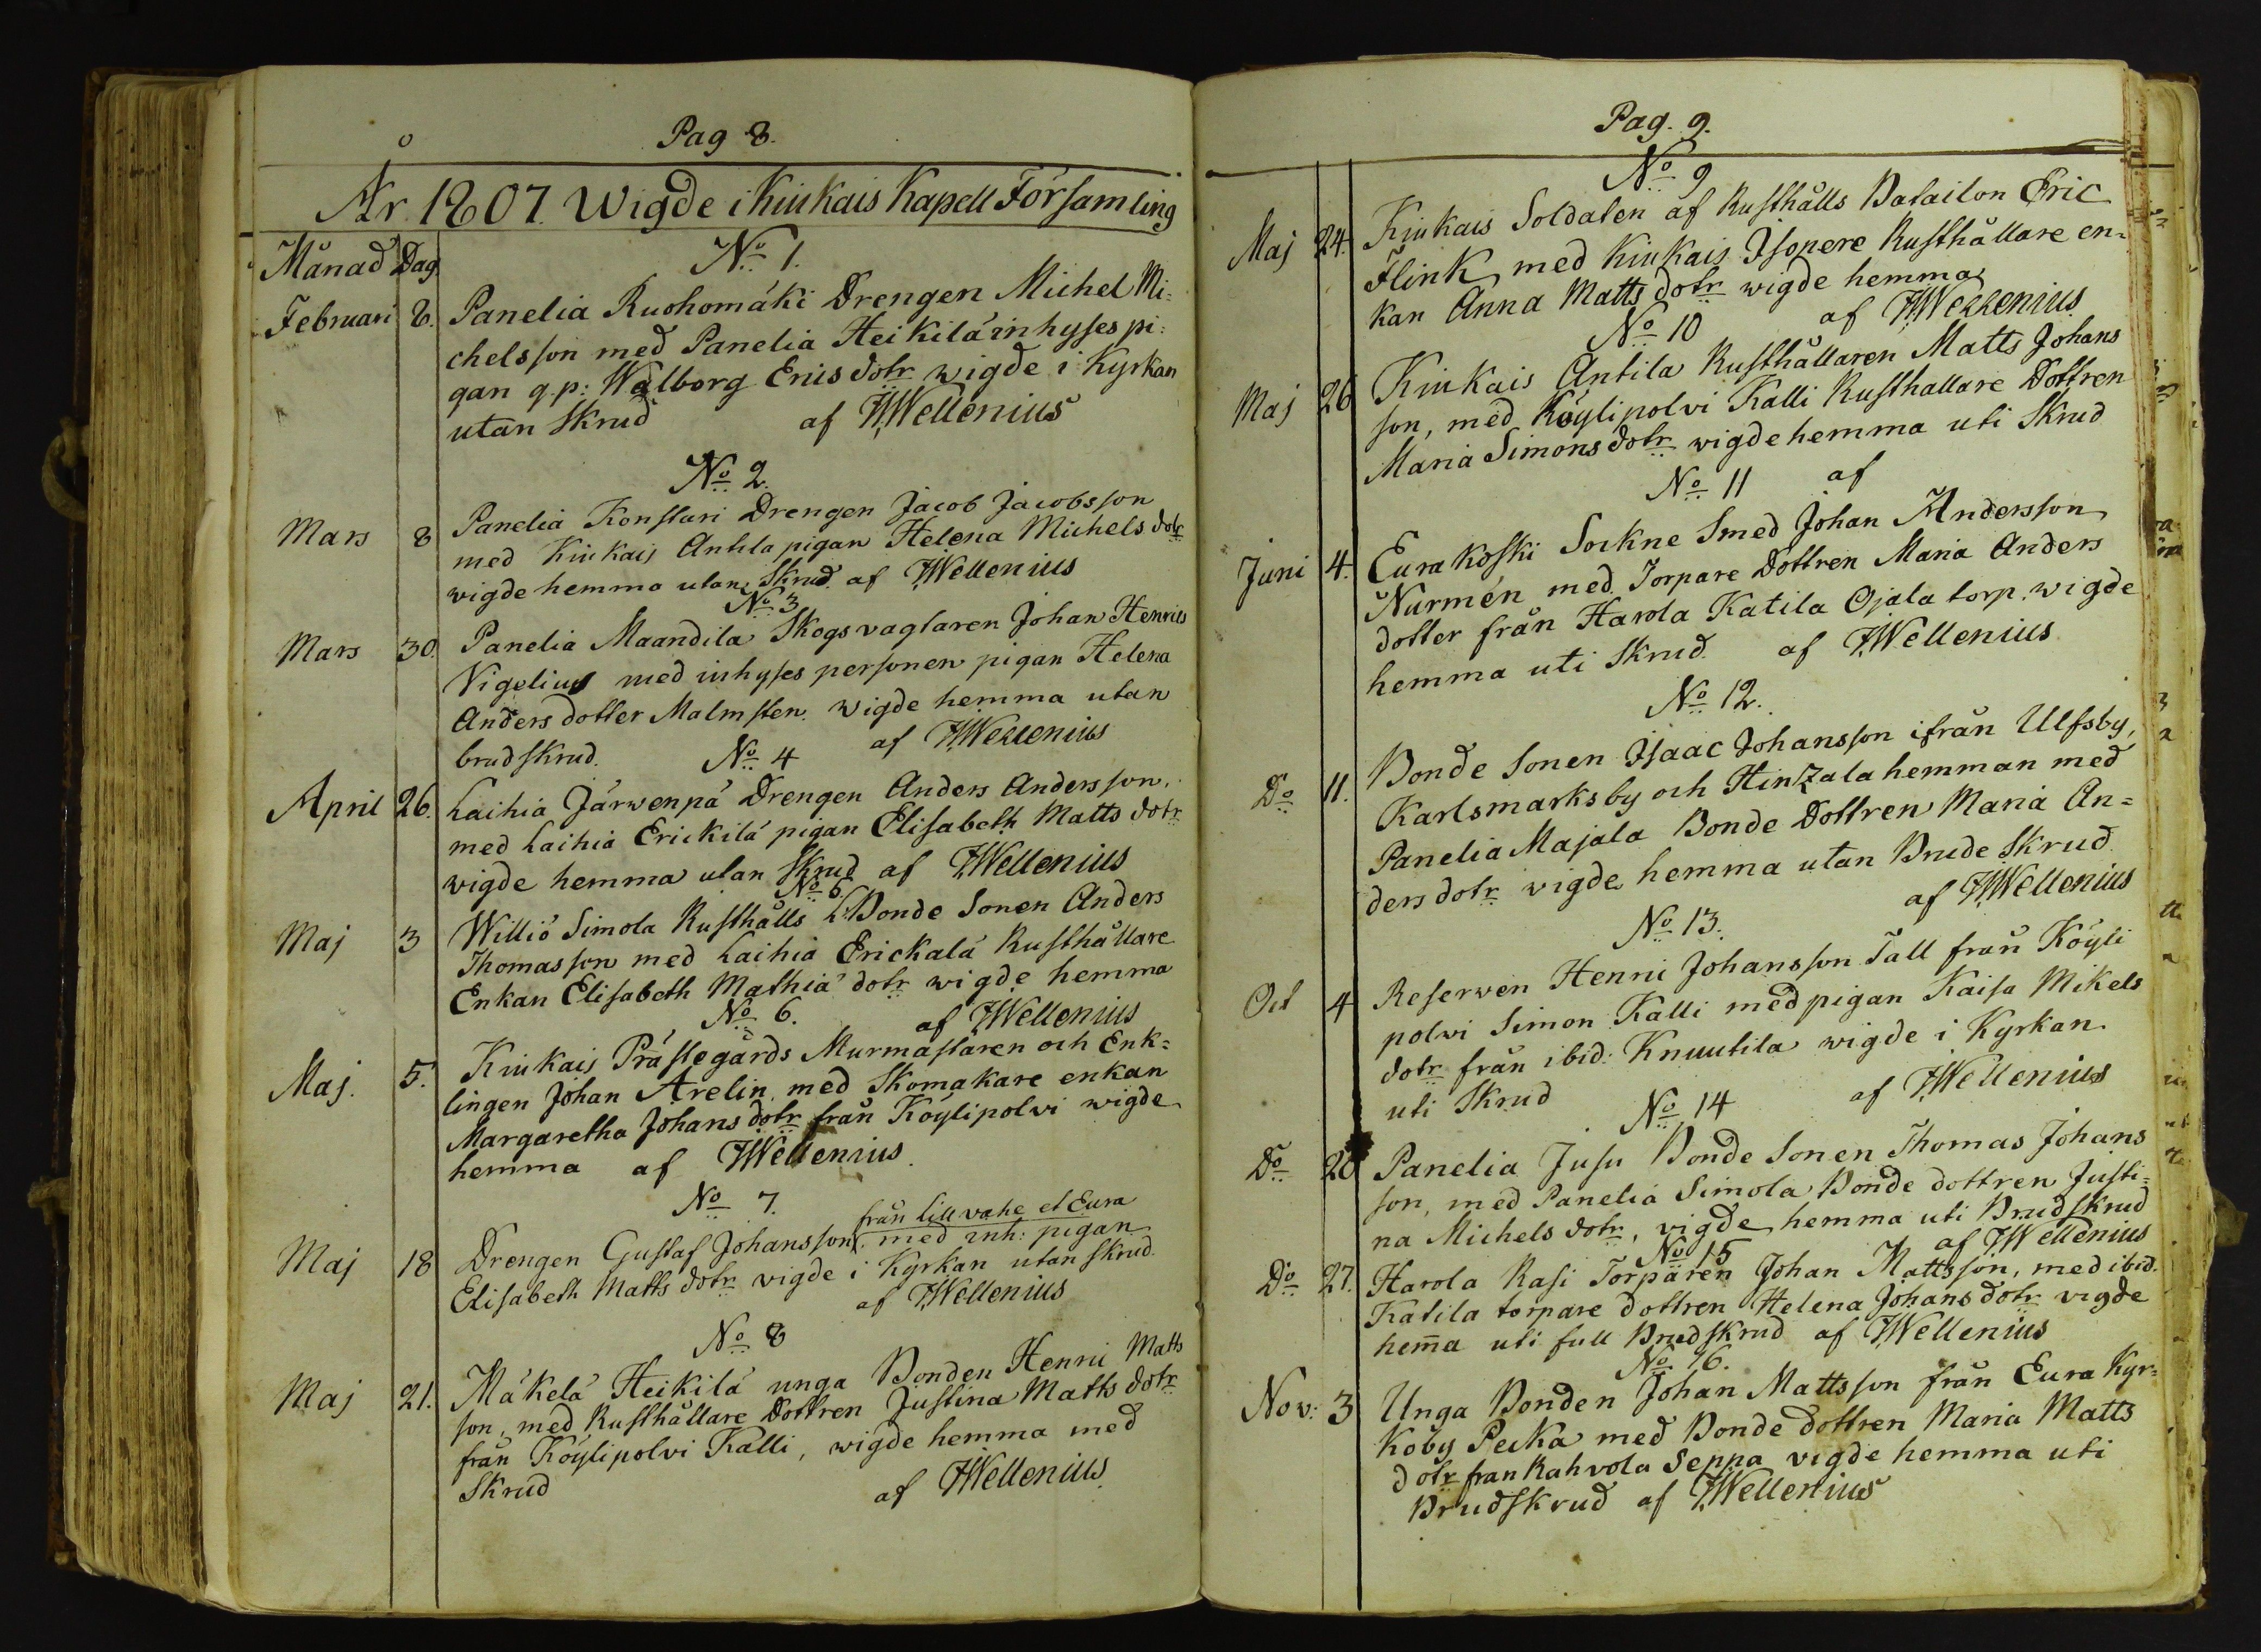 Pag 8.
År 1807. Wigde i Kiukais Kapell Församling
Månad Dag
No 1.
Februari 8. Panelia Ruohomäki Drengen Michel Mi-
chelsson med Panelia Heikilä inhyses pi-
gan q.p: Walborg Erics dotr wigde i Kyrkan
utan Skrud af JWellenius
No 2.
Mars 8 Panelia Konstari Drengen Jacob Jacobsson
med Kiukais Antila pigan Helena Michels dotr
wigde hemma utan Skrud. af JWellenius
No 3
Mars 30. Panelia Maandila Skogsvagtaren Johan Henrics
Vigelius med inhyses personen pigan Helena
Anders dotter Malmsten. wigde hemma utan
brudskrud. af JWellenius
No 4
April 26. Laihia Järwenpä Drengen Anders Andersson,
med Laihia Erickilä pigan Elisabeth Matts dotr
wigde hemma utan Skrud af JWellenius
No 5
Maj 3 Williö Simola Rusthålls Bonde Sonen Anders
Thomasson med Laihia Erickalä Rusthållare
Enkan Elisabeth Mathiä dotr wigde hemma
af JWellenius
No 6.
Maj. 5. Kiukais Prästegårds Murmästaren och Enk-
lingen Johan Arelin med Skomakare enkan
Margaretha Johans dotr från Köylipolvi wigde
hemma af JWellenius.
No 7.
från Lillvahe et Eura
Maj 18 Drengen Gustaf Johansson med inh: pigan
Elisabeth Matts dotr vigde i Kyrkan utan skrud.
af JWellenius
No 8
Maj 21. Mäkelä Heikilä unga Bonden Henric Matts
son, med Rusthållare Dottren Justina Matts dotr
från Köylipolvi Kalli, wigde hemma med
Skrud af JWellenius.
Pag. 9.
No 9
Maj 24. Kiukais Soldaten af Rusthålls Batailon Eric
Flink med Kiukais Isopere Rusthållare en-
kan Anna Matts dotr wigde hemma
af JWellenius
No 10
Maj 26 Kiukais Antila Rusthållaren Matts Johans
son, med Köylipolvi Kalli Rusthållare Dottren
Maria Simons dotr wigde hemma uti Skrud
af
No 11
Juni 4. Eura Koski Sockne Smed Johan Andersson
Nurmén med Torpare Dottren Maria Anders
dotter från Harola Katila Ojala torp. wigde
hemma uti Skrud. af JWellenius
No 12.
Do 11. Bonde Sonen Isaac Johansson ifrån Ulfsby,
Karlsmarksby och Hinzala hemman med
Panelia Majala Bonde Dottren Maria An-
ders dotr wigde hemma utan Brude Skrud.
af JWellenius
No 13.
Oct 4 Reserven Henric Johansson Tall från Köyli
polwi Simon Kalli med pigan Kaisa Mikels
dotr från ibid: Knuutila wigde i Kyrkan
uti Skrud af JWellenius
No 14
Do 20 Panelia Jusu Bonde Sonen Thomas Johans
son, med Panelia Simola Bonde dottren Justi-
na Michels dotr, vigde hemma uti Brudskrud
af JWellenius
No 15
Do 27. Harola Rasi Torparen Johan Mattsson, med ibid.
Katila torpare dottren Helena Johans dotr vigde
hem̄a uti full Brudskrud af JWellenius
No 16.
Nov: 3 Unga Bonden Johan Mattsson från Eura Kyr-
koby Pecka med Bonde dottren Maria Matts
dotr fran Kahvola Seppa vigde hemma uti
Brudskrud af JWellenius